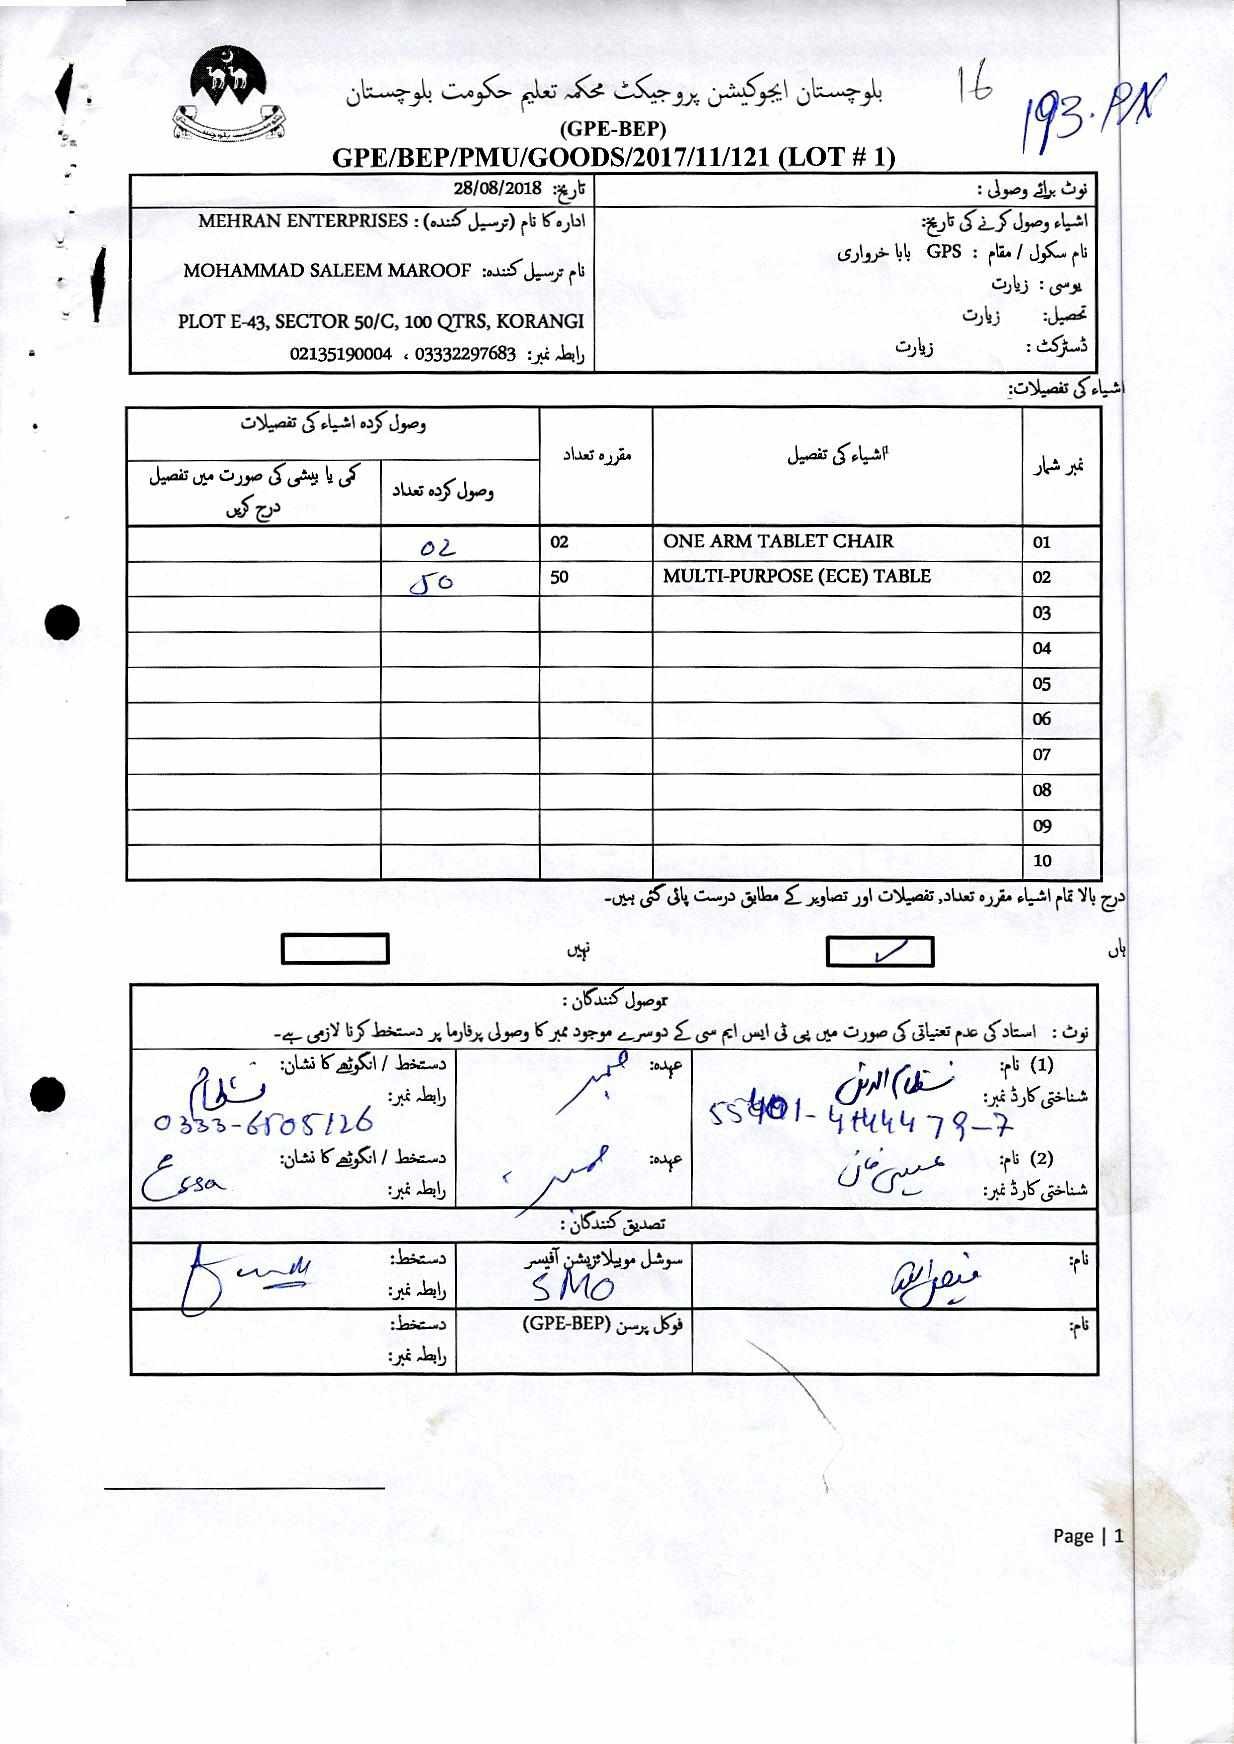 بلوچستان ایجوکیشن پروجیکٹ محکمہ تعلیم حکومت بلوچستان
16
193.
(GPE-BEP)
GPE/BEP/PMU/GOODS/2017/11/121 (LOT # 1)
نوٹ برائے وصولی :
تاریخ: 28/08/2018
اشیاء وصول کرنے کی تاریخ:
نام سکول / مقام : GPS بابا خرواری
یوسی : زیارت
تحصیل: زیارت
ڈسٹرکٹ : زیارت
ادارہ کا نام (ترسیل کنندہ) : MEHRAN ENTERPRISES
نام ترسیل کنندہ: MOHAMMAD SALEEM MAROOF
PLOT E-43, SECTOR 50/C, 100 QTRS, KORANGI
رابطہ نمبر: 03332297683 ، 02135190004
اشیاء کی تفصیلات:
نمبر شمار اشیاء کی تفصیل مقررہ تعداد وصول کردہ اشیاء کی تفصیلات
وصول کردہ تعداد کمی یا بیشی کی صورت میں تفصیل درج کریں
01 ONE ARM TABLET CHAIR 02 02
02 MULTI-PURPOSE (ECE) TABLE 50 50
03
04
05
06
07
08
09
10
درج بالا تمام اشیاء مقررہ تعداد, تفصیلات اور تصاویر کے مطابق درست پائی گئی ہیں۔
ہاں ✓ نہیں
وصول کنندگان :
نوٹ : استاد کی عدم تعیناتی کی صورت میں پی ٹی ایس ایم سی کے دوسرے موجود ممبر کا وصولی پرفارما پر دستخط کرنا لازمی ہے۔
(1) نام: نظام الدین عہدہ: ممبر دستخط / انگوٹھے کا نشان: نظام
شناختی کارڈ نمبر: رابطہ نمبر:
0333-6505126
(2) نام: عیسیٰ خان عہدہ: ممبر دستخط / انگوٹھے کا نشان: Essa
شناختی کارڈ نمبر: رابطہ نمبر:
تصدیق کنندگان :
نام: فیض اللہ سوشل موبیلائزیشن آفیسر دستخط:
SMO رابطہ نمبر:
نام: فوکل پرسن (GPE-BEP) دستخط:
رابطہ نمبر:
Page | 1